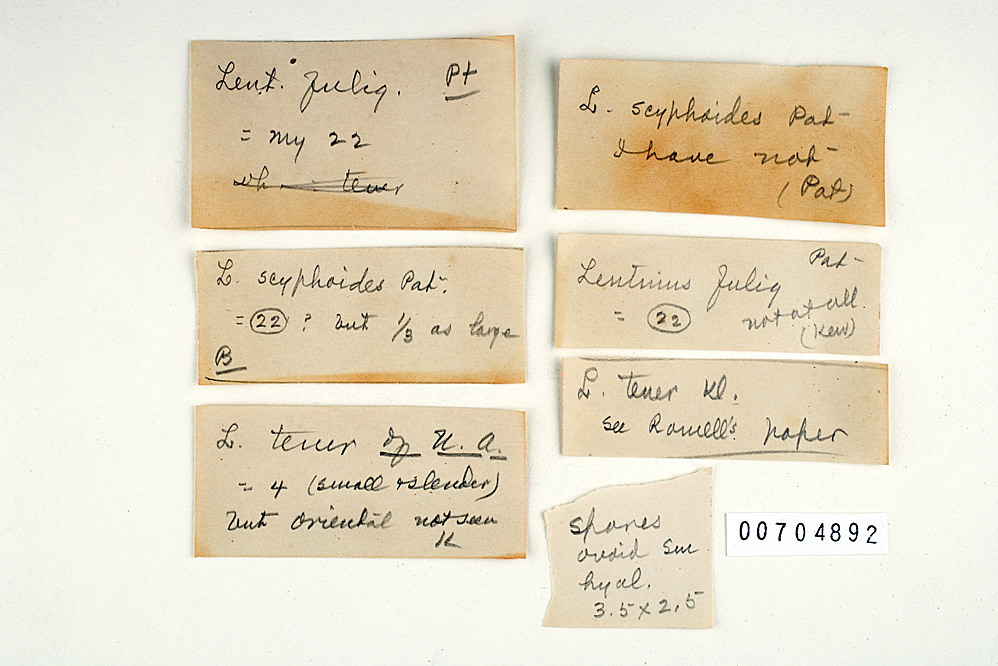 Lent. Julig. Pt
= my 22
tener
L. scyphoides Pat.
= 22 ? but 1/3 as large
B
L. tener of U. A.
= 4 (small & slender)
but oriental not seen
K
L. scyphoides Pat
I have not
(Pat)
Pat
Lentinus Julig
= 22 not at all
(Kew)
L. tener Kl.
see Romell's paper
spores
ovoid sm
hyal.
3.5 x 2.5
00704892